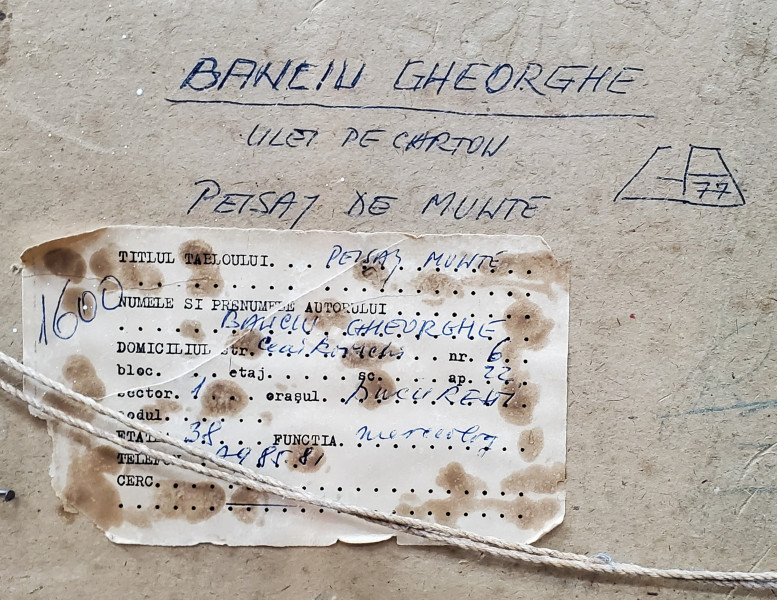 BANCIU GHEORGHE
ULEI PE CARTON
PEISAJ DE MUNTE
77
TITLUL TABLOULUI. . . PEISAJ MUNTE
1600
NUMELE SI PRENUMELE AUTORULUI
BANCIU GHEORGHE
DOMICILIUL str. nr. 6
bloc. . . . . . etaj. . . . . . sc. . . . . ap. 22
sector. 1 . . . orașul. BUCUREȘTI
codul. . . . . . . .
ETATE 38. . . FUNCTIA. merceolog
TELEFON
CERC. . . . . . . . . . . . . . . . . . . . . .